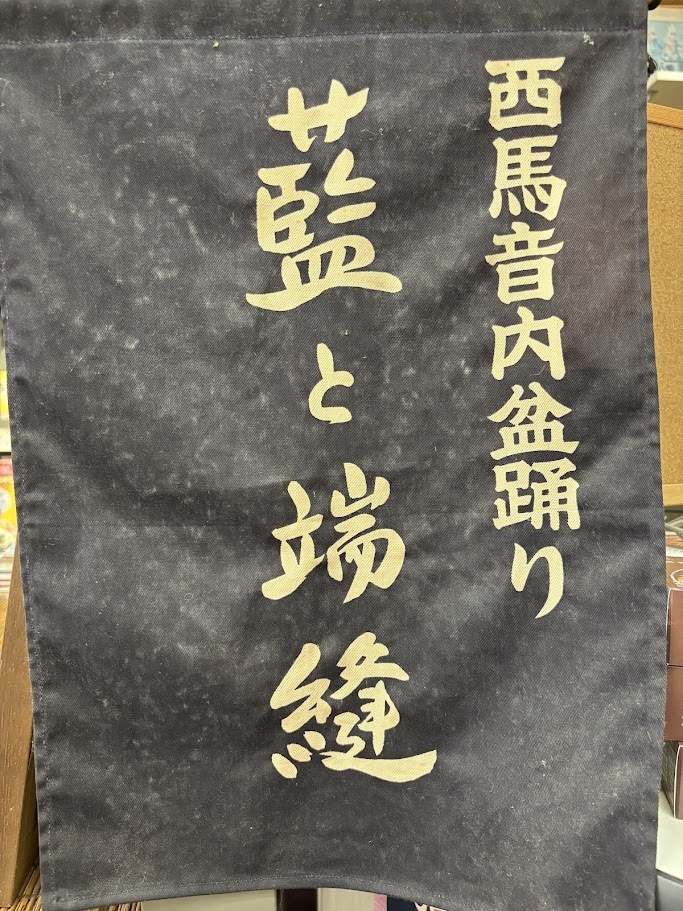 西馬音内盆踊り
藍と端縫